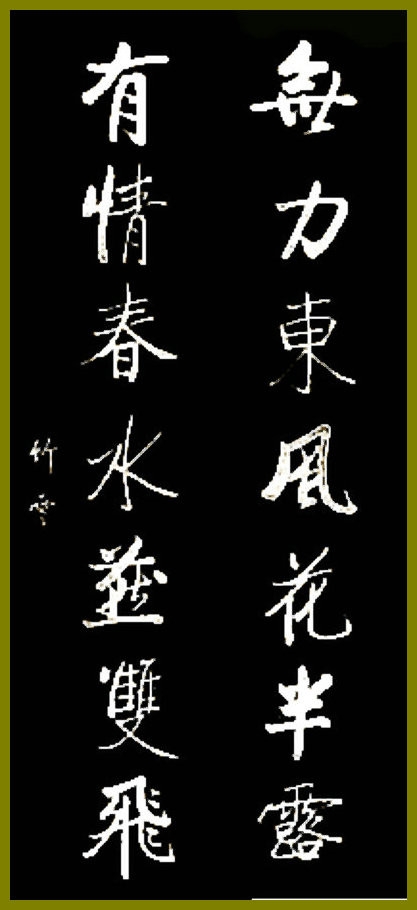 無力東風花半露
有情春水燕雙飛
竹雲